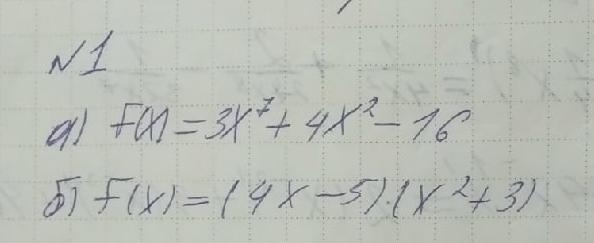 №1
а) f(x) = 3x⁷ + 4x² - 16
б) f(x) = (4x - 5)·(x² + 3)